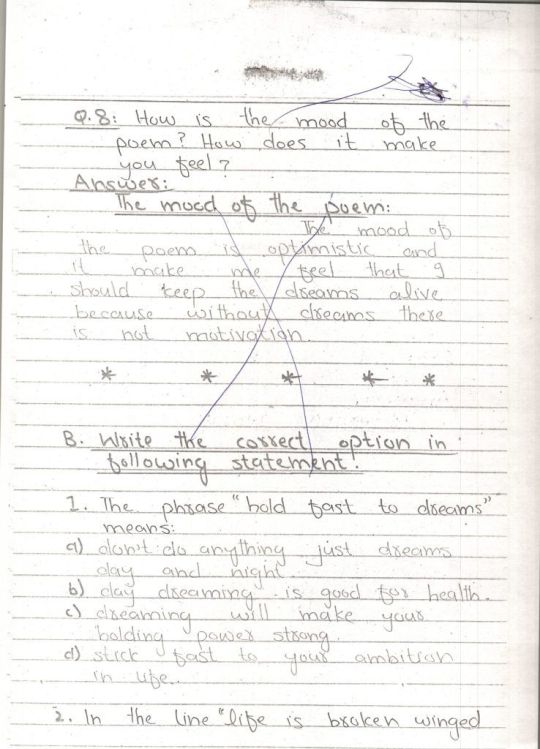 Q.8: How is the mood of the
poem? How does it make
you feel?
Answer:
The mood of the poem:
The mood of
the poem is optimistic and
it make me feel that I
should keep the dreams alive
because without dreams there
is not motivation.
* * * * *
B. Write the correct option in
following statement:
1. The phrase "hold fast to dreams"
means:
a) don't do anything just dreams
day and night.
b) day dreaming is good for health.
c) dreaming will make your
holding power strong.
d) stick fast to your ambition
in life.
2. In the line "life is broken winged